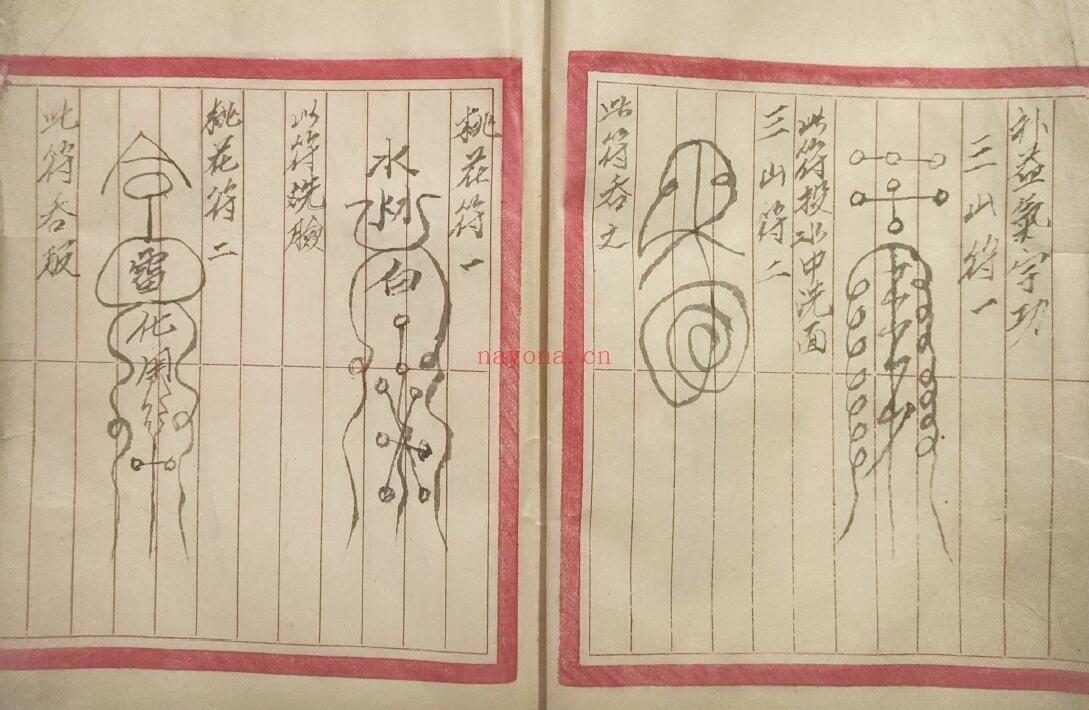 补益氣字功
三山符一
此符投水中洗面
三山符二
此符吞之
桃花符一
水
白
以符洗臉
桃花符二
雷
化
此符吞服
nayona.cn